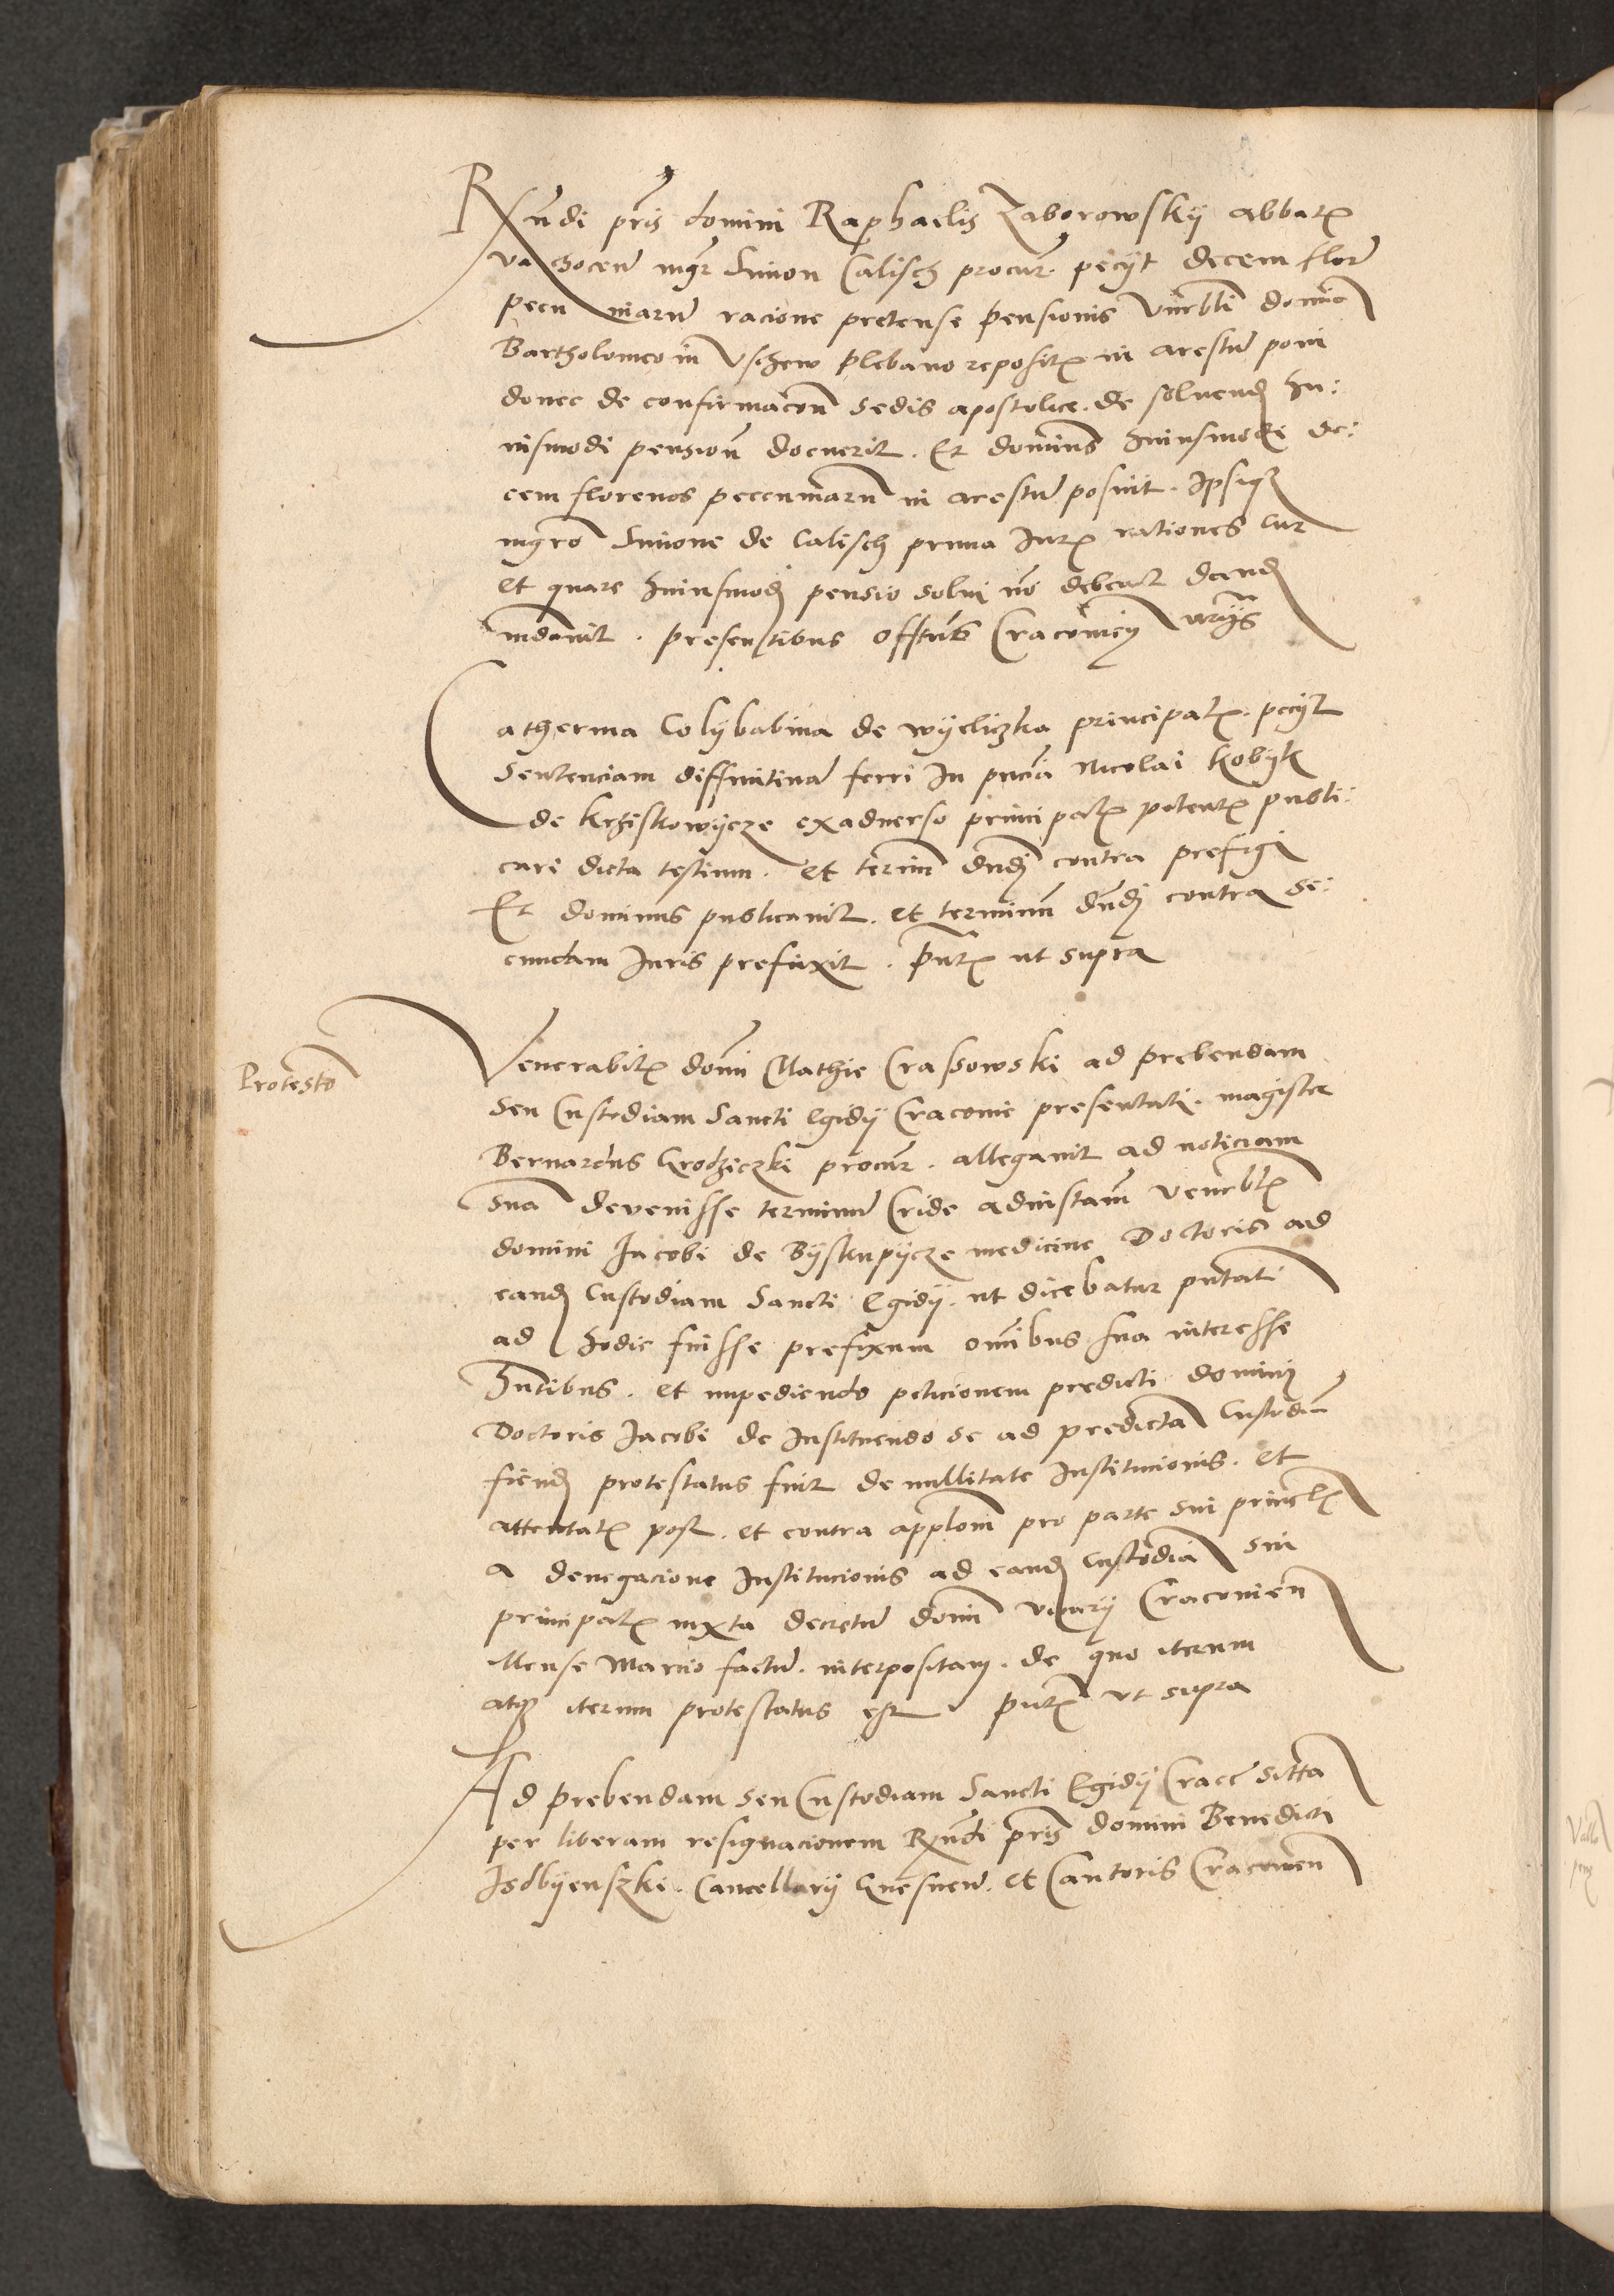 Rṅdi pris domini Raphaelis Zaborowskÿ abbatis
vachocen mgr Simon Calisch procur. peciit decem flor
pecuniarum racione pretense pensionis Vnrbli domino
Bartholomeo in Vschew plebano repositos in arestum poni
donec de confirmacōn sedis apostolice. de soluend hu:
iusmodi pension docuerit. Et dominus huiusmodi de:
cem florenos peccuniarum in arestum posuit. Ipsiqz
mgro Simone de Calisch prima Iuris rationes cur
et quare huiusmodi pensio solui nō debeat dcend
indauit. presentibus offtubus Cracouien
Catherina Colÿbabina de wÿeliczka principalis. peciit
Sentenciam diffinitiuam ferri In pncia Nicolai Kobÿlk
de Krziskowÿcze exaduerso principalis petentis publi:
cari dicta testium. et termin dnd contra prefigi
Et dominus publicauit. et terminum dnd contra se:
cundam Iuris prefixit. pntis ut supra
Protesto
Venerabilis domi Mathie Crassowski ad prebendam
seu Custodiam Sancti Egidÿ Cracouie presentati. magister
Bernardus Grodziczki procur. allegauit ad noticiam
sua deuenisse terminum Cride adinstam venerblis
domini Jacobi de Bÿskupÿcze medicine Doctoris ad
eand Custodiam Sancti Egidÿ. ut dicebatur pntati
ad hodie fuisse prefixum omibus sua interesse
hntibus. et impediendo peticionem predicti domini
Doctoris Jacobi de Instituendo se ad predicta Custodiam
fiend protestatus fuit de nullitate Institucionis. et
attentatis post. et contra applom pro parte sui princlis
a denegacione Institucionis ad eand Custodia sui
principalis iuxta decretum domi vicarÿ Cracouien
Mense Marcio factum. interpositam. de quo iterum
atqz iterum protestatus est pntis vt supra
Ad prebendam seu Custodiam Sancti Egidÿ Cracc sitta
per liberam resignacionem Rṅdi pris domini Benedicti
Isdbÿenszki. Cancellarÿ Gnesnen. et Cantoris Cracouien